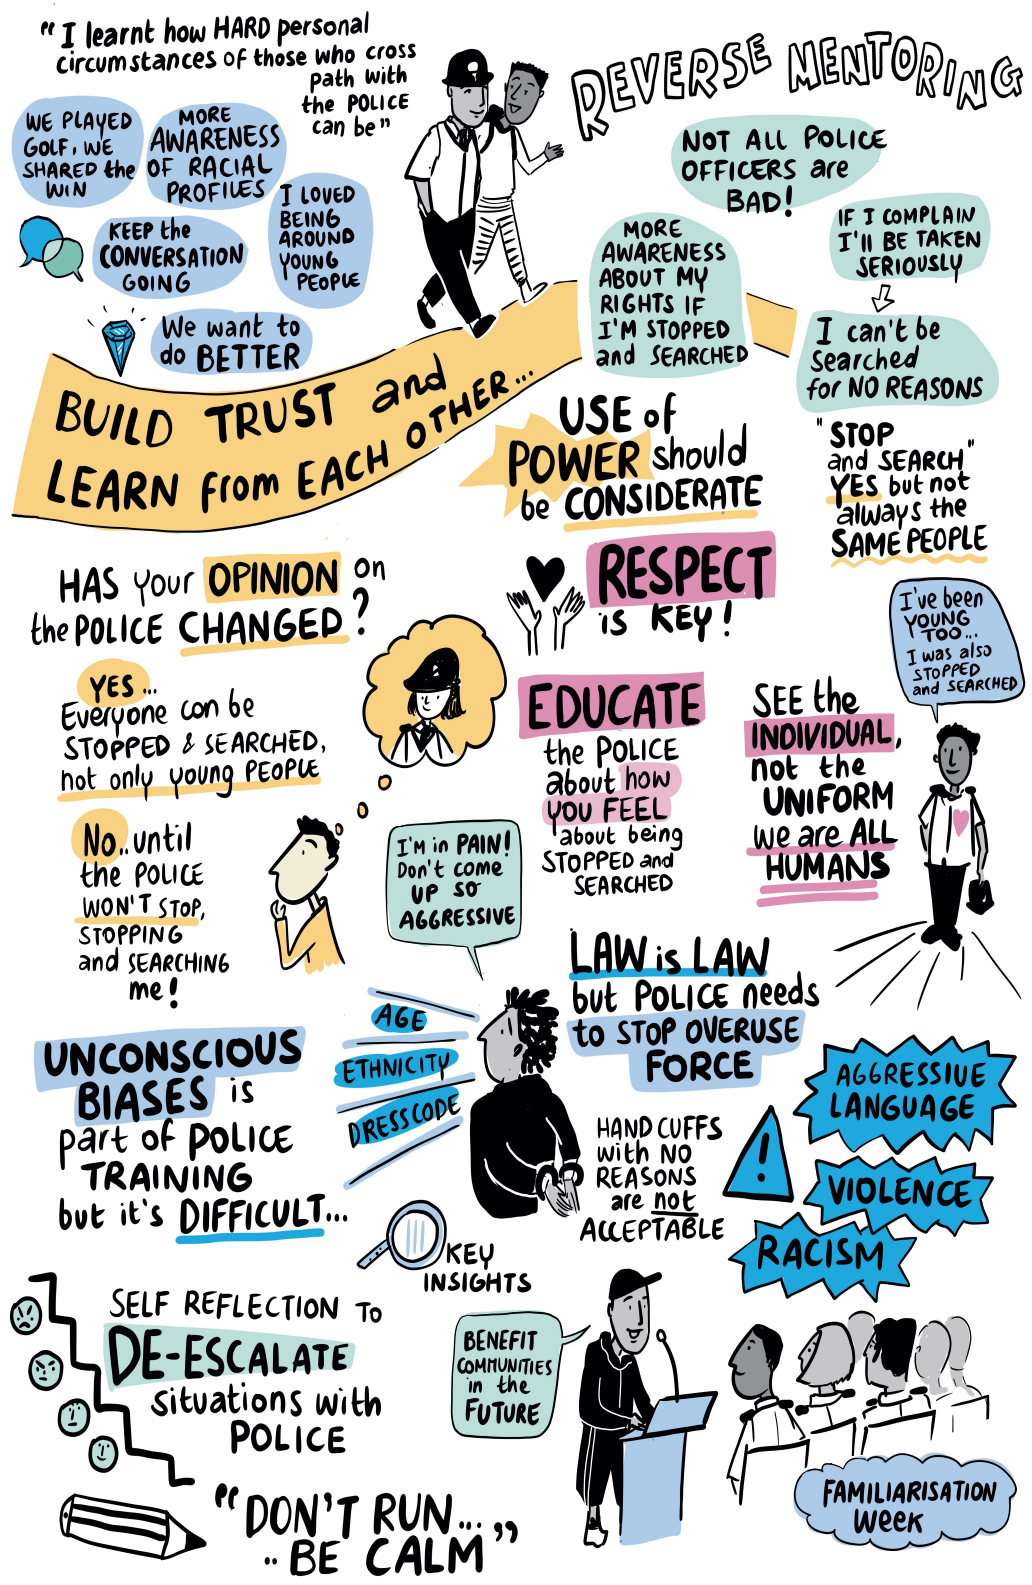 "I learnt how HARD personal
circumstances of those who cross
path with
the POLICE
can be"
REVERSE MENTORING
WE PLAYED
GOLF, WE
SHARED the
WIN
MORE
AWARENESS
OF RACIAL
PROFILES
I LOVED
BEING
AROUND
YOUNG
PEOPLE
KEEP the
CONVERSATION
GOING
We want to
do BETTER
NOT ALL POLICE
OFFICERS are
BAD!
MORE
AWARENESS
ABOUT MY
RIGHTS IF
I'M STOPPED
and SEARCHED
IF I COMPLAIN
I'll BE TAKEN
SERIOUSLY
I can't be
Searched
for NO REASONS
BUILD TRUST and
LEARN from EACH OTHER...
USE of
POWER should
be CONSIDERATE
"STOP
and SEARCH"
YES but not
always the
SAME PEOPLE
HAS your OPINION on
the POLICE CHANGED?
RESPECT
is KEY!
YES...
Everyone can be
STOPPED & SEARCHED,
not only young PEOPLE
No.. until
the POLICE
WON'T STOP,
STOPPING
and SEARCHING
me!
EDUCATE
the POLICE
about how
YOU FEEL
about being
STOPPED and
SEARCHED
SEE the
INDIVIDUAL,
not the
UNIFORM
we are ALL
HUMANS
I've been
YOUNG
TOO...
I was also
STOPPED
and SEARCHED
I'M in PAIN!
Don't come
UP SO
AGGRESSIVE
LAW is LAW
but POLICE needs
to STOP OVERUSE
FORCE
AGE
ETHNICITY
DRESSCODE
UNCONSCIOUS
BIASES is
part of POLICE
TRAINING
but it's DIFFICULT...
HAND CUFFS
with NO
REASONS
are not
ACCEPTABLE
!
AGGRESSIVE
LANGUAGE
VIOLENCE
RACISM
KEY
INSIGHTS
SELF REFLECTION TO
DE-ESCALATE
situations with
POLICE
BENEFIT
COMMUNITIES
in the
FUTURE
"DON'T RUN...
.. BE CALM"
FAMILIARISATION
WEEK